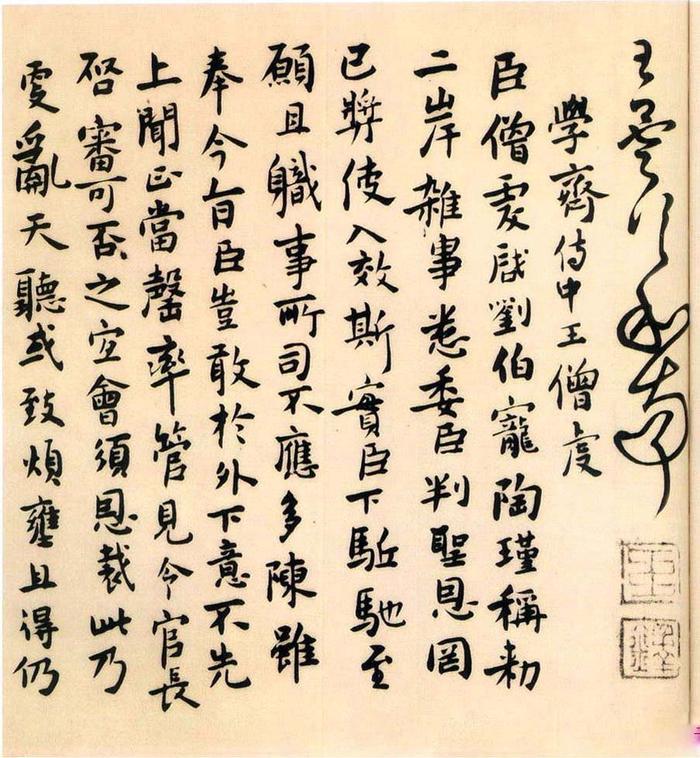 和南
學齊侍中王僧虔
臣僧虔啟劉伯寵陶瑾稱勅
二岸雜事悉委臣判聖恩罔
已獎使入效斯實臣下駈馳至
願且職事所司不應多陳雖
奉今旨臣豈敢於外下意不先
上聞正當罄率管見今官長
啓審可否之宜會須恩裁此乃
更亂天聽或致煩壅且得仍
王鐸